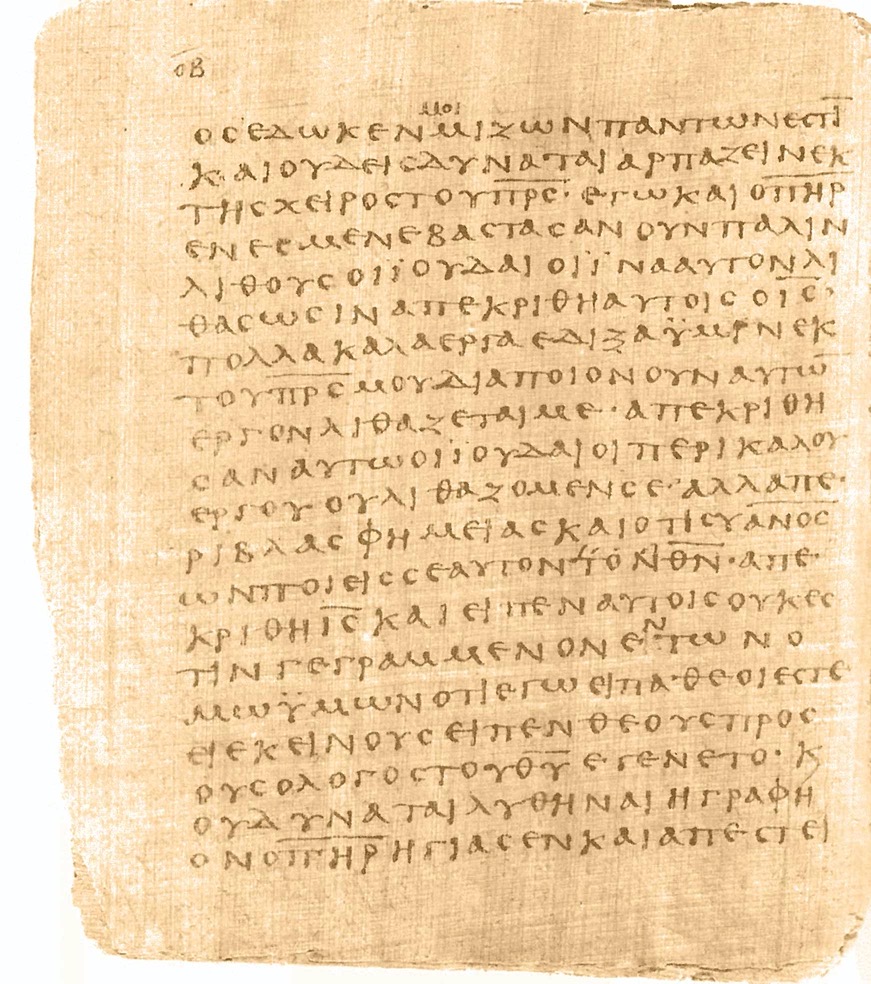 οβ
μοι
οσεδωκενμιζωνπαντωνεστῑ
καιουδεισδυναταιαρπαζεινεκ
τησχειροστουπ̅ρ̅σ̅· εγωκαιοπ̅η̅ρ̅
ενεσμενεβαστασανουνπαλιν
λιθουσοιϊουδαιοιϊνααυτονλι
θασωσιναπεκριθηαυτοισοι̅σ̅·
πολλακαλαεργαεδιξαϋμινεκ
τουπ̅ρ̅σ̅μουδιαποιονουναυτω̅
εργονλιθαζεταιμε·απεκριθη
σαναυτωοιϊουδαιοιπερικαλου
εργουουλιθαζομενσε·αλλαπε·
ριβλασφημειασκαιοτισυα̅ν̅ο̅σ̅
ωνποιεισσεαυτοντονθ̅ν̅·απε·
κριθηι̅σ̅καιειπεναυτοισουκεσ
τινγεγραμμενονεντωνο
μωϋμωνοτιεγωειπα·θεοιεστε
ειεκεινουσειπενθεουσπρος
ουσολογοστουθ̅υ̅εγενετο·κ
ουδυναταιλυθηναιηγραφη
ονοπ̅η̅ρ̅ηγιασενκαιαπεστει